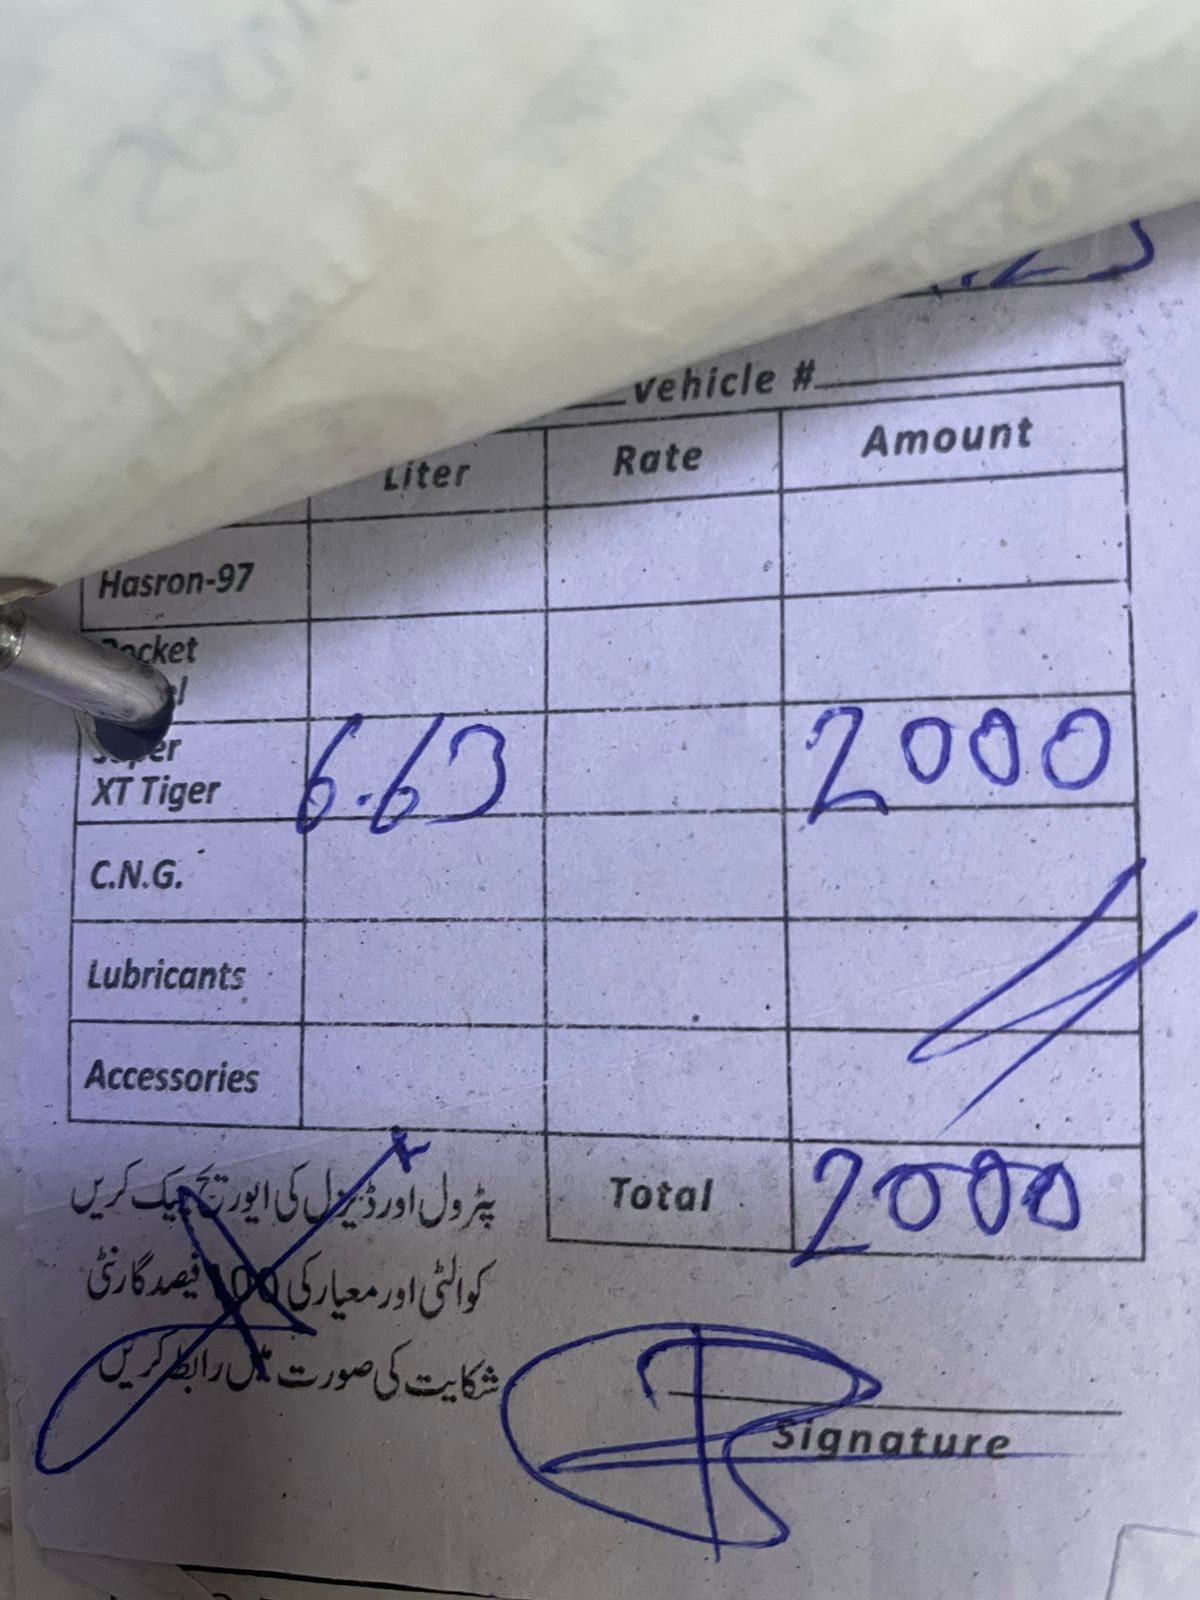 Vehicle #
Liter Rate Amount
Hasron-97
XT Tiger 6.63 2000
C.N.G.
Lubricants
Accessories
Total 2000
پٹرول اور ڈیزل کی ایوریج چیک کریں
کوالٹی اور معیار کی 100 فیصد گارنٹی
شکایت کی صورت میں رابطہ کریں
Signature